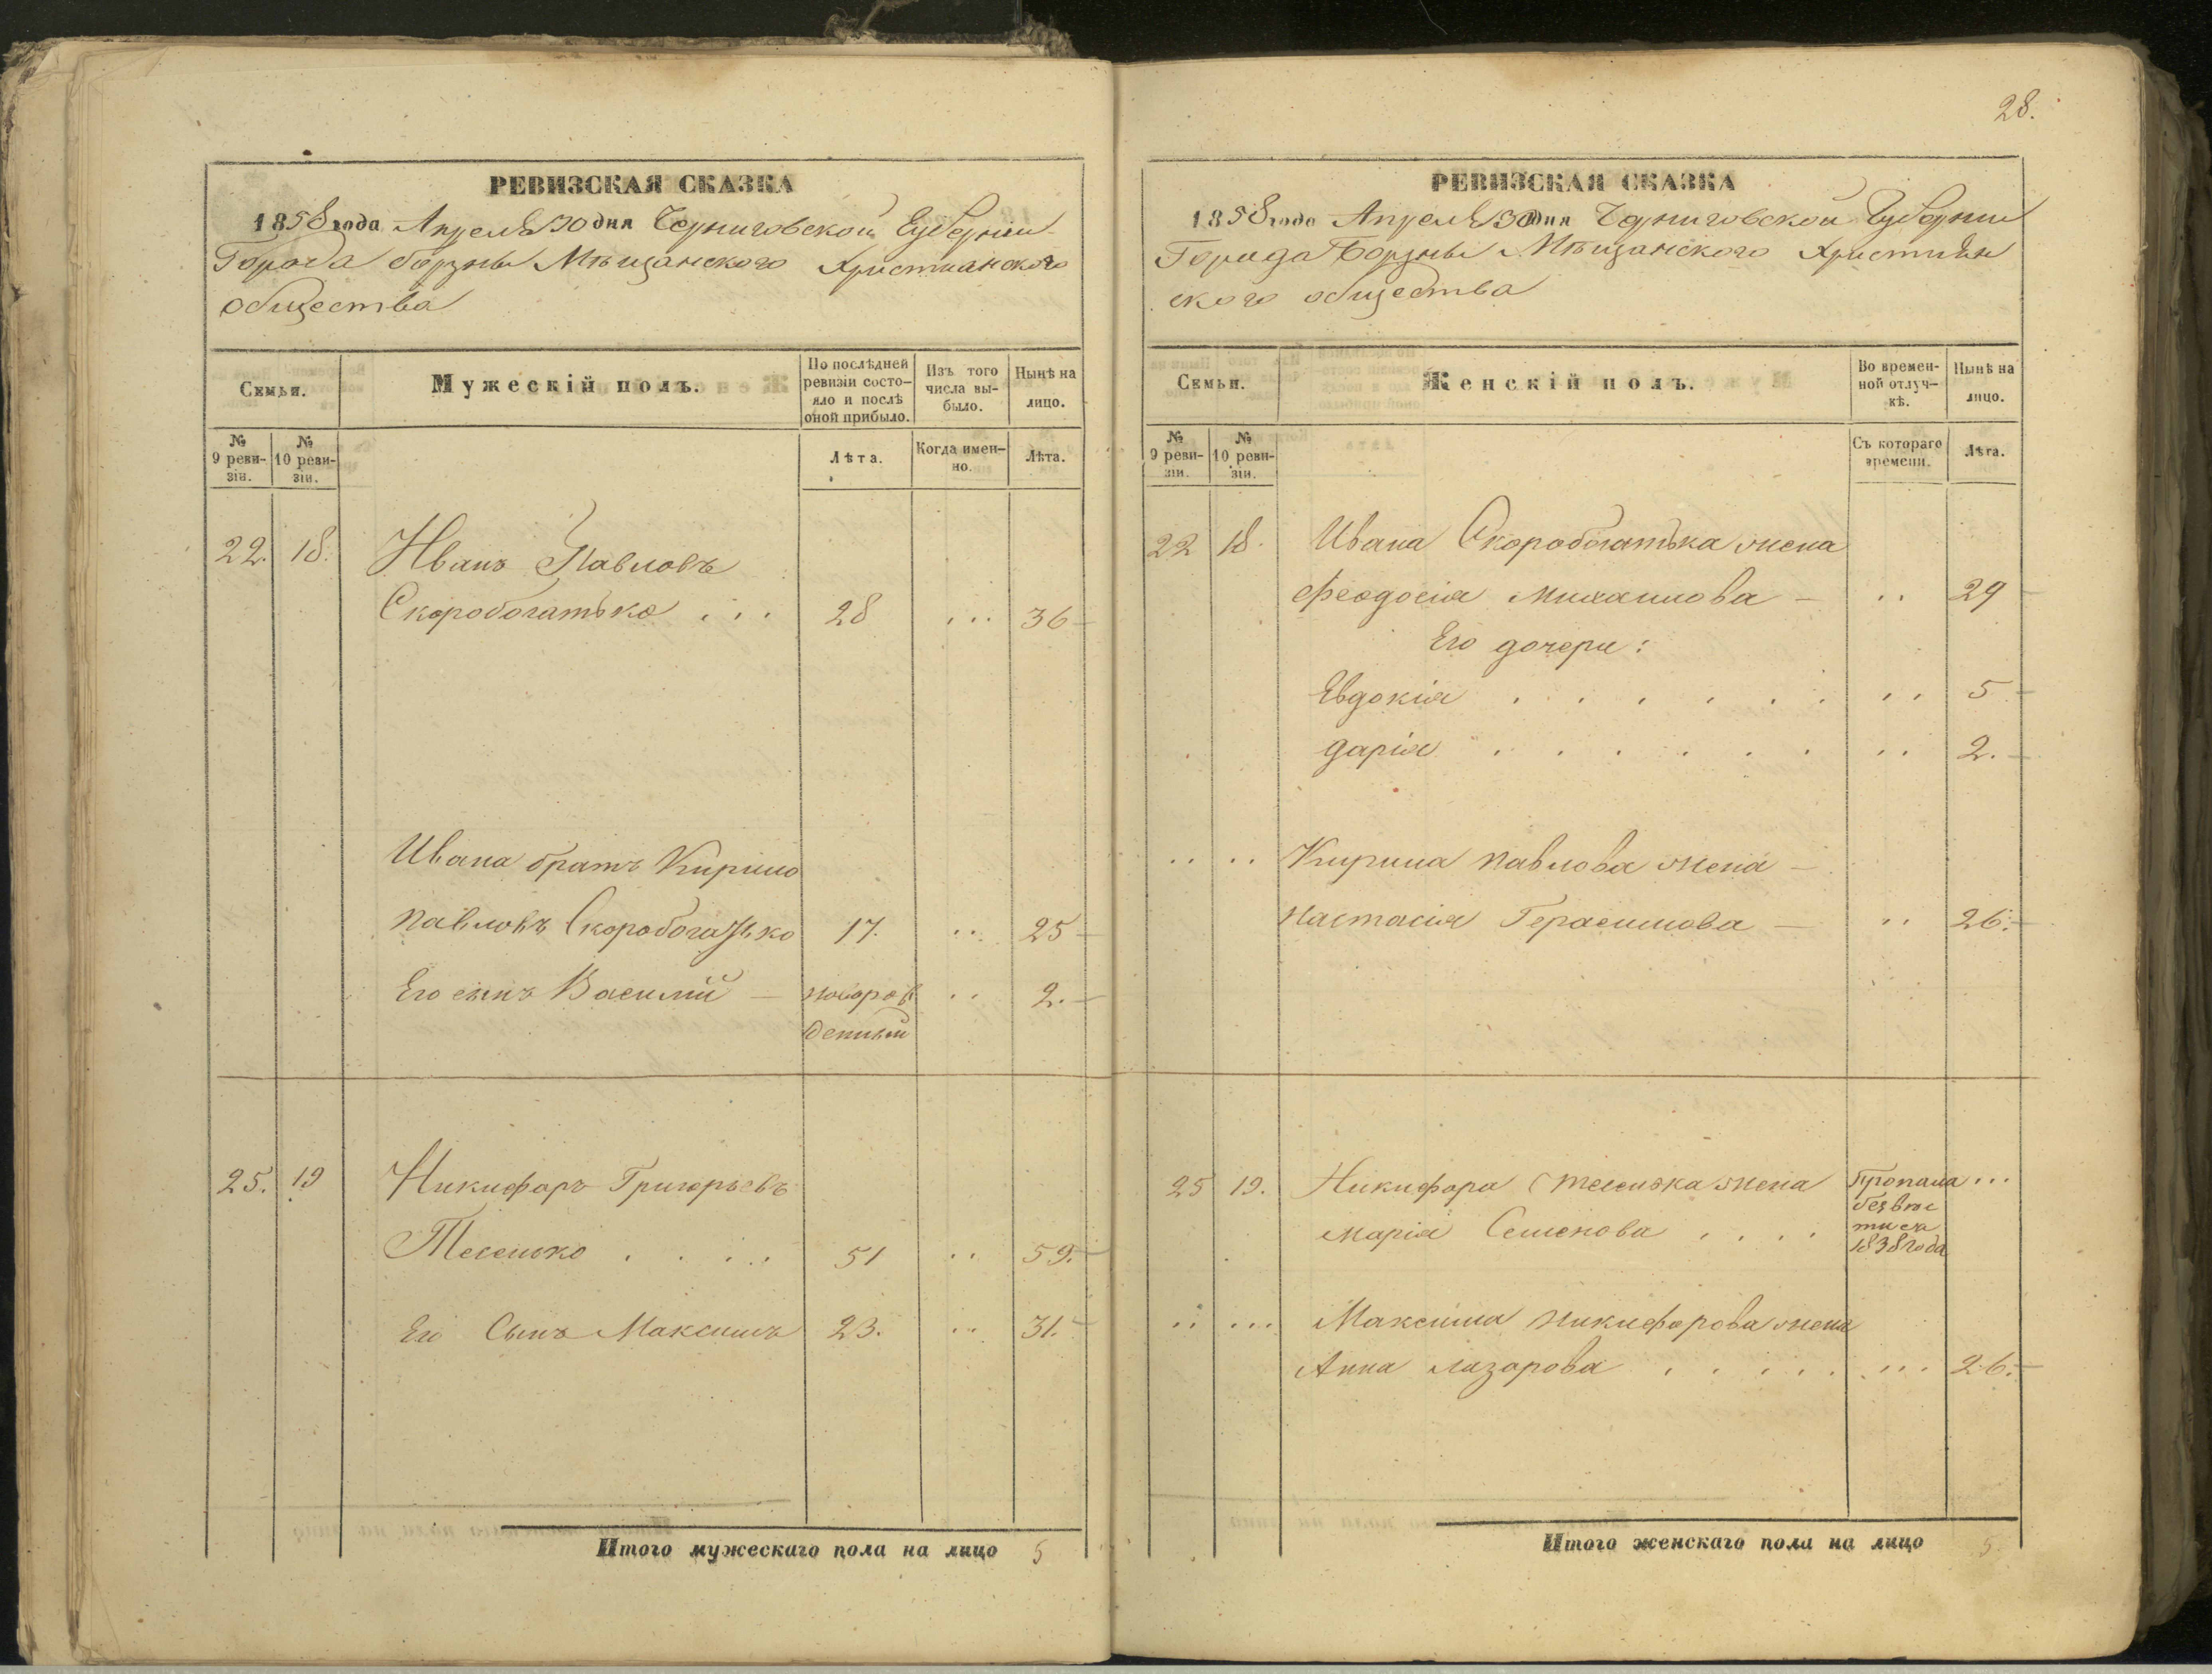 РЕВИЗСКАЯ СКАЗКА
1858 года Апреля 30 дня Черниговской Губернии
Города борзны Мѣщанского Христианского
общества
Семьи.
Мужескій полъ.
По послѣдней ревизіи состо-
яло и послѣ оной прибыло.
Изъ того числа вы-
было.
Нынѣ на лицо.
№ 9 реви-
зіи.
№ 10 реви-
зіи.
Лѣта.
Когда имен-
но.
Лѣта.
22. 18. Иванъ Павловъ
Скоробогатько . . . 28 . . . 36 –
Ивана братъ Кирило
павловъ Скоробогатько 17. .. 25 –
Его сынъ Василий – новорож .. 2. –
денный
25. 19 Никифоръ Григорьевъ
. . . . 51 .. 59. –
Его Сынъ Максимъ 23. .. 31. –
Итого мужескаго пола на лицо 5
28.
РЕВИЗСКАЯ СКАЗКА
1858 года Апреля 30 дня Черниговской Губернии
Города Борзны Мѣщанского Христиан
ского общества
Семьи.
Женскій полъ.
Во времен-
ной отлуч-
кѣ.
Нынѣ на лицо.
№ 9 реви-
зіи.
№ 10 реви-
зіи.
Съ котораго времени.
Лѣта.
22 18. Ивана Скоробогатька жена
Феодосия Михаилова – .. 29 –
Его дочери:
Евдокия . . . . . . .. 5 –
дария . . . . . . .. 2. –
.. .. Кирила павлова жена –
настасия Герасимова – .. 26. –
25 19. Никифора жена Пропала ...
мария Семенова . . . . безвѣс
тиса
1838 года
.. ... Максима никифорова жена
Анна лазарова . . . . . ... 26. –
Итого женскаго пола на лицо 5.